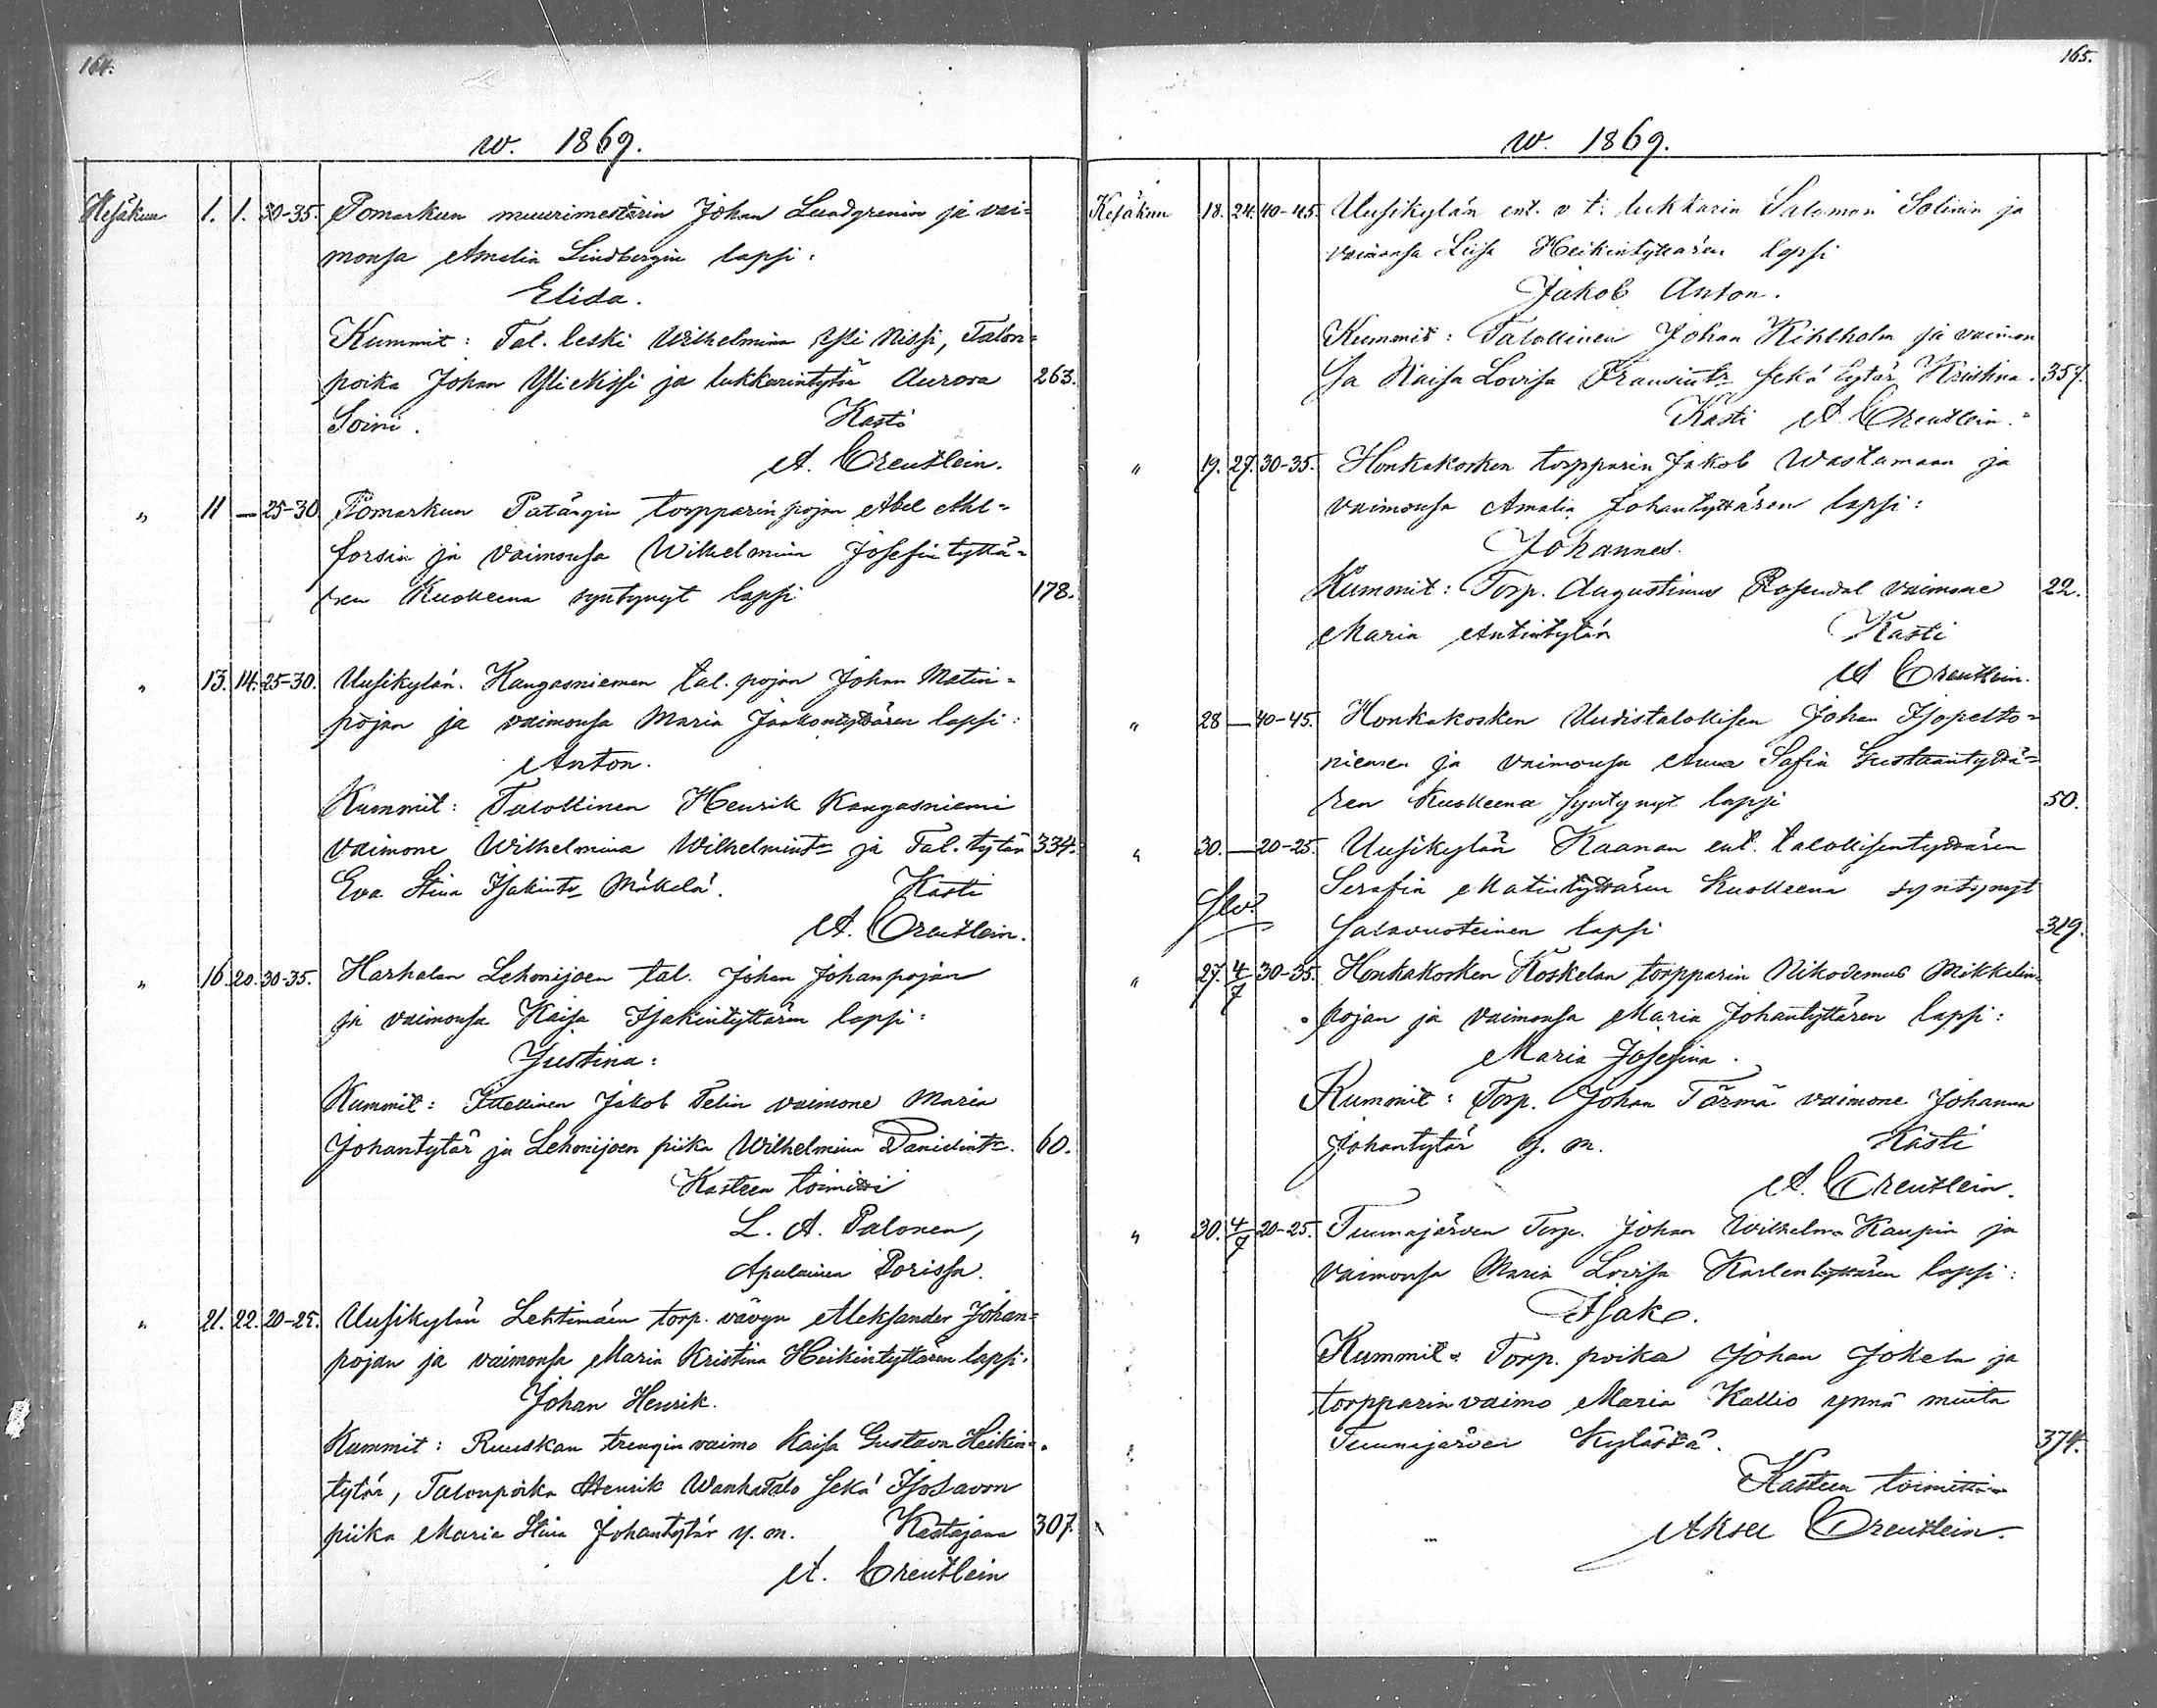 164.
w. 1869.
Kesäkuu 1. 1. 30-35. Pomarkun muurimestärin Johan Lundgrenin ja vai=
monsa Amalia Lindbergin lapsi:
Elida.
Kummit: Tal. leski Wilhelmina Yli Nissi, Talon=
poika Johan Ylienissi ja lukkarintytär Aurora 263.
Soini. Kasti
A. Creutlein.
" 11 — 25-30 Pomarkun Patängin torpparin pojan Abel Ahl=
forsin ja vaimonsa Wilhelmina Josefintyttä=
ren Kuolleena syntynyt lapsi 178.
" 13. 14. 25-30. Uusikylän Kangasniemen tal. pojan Johan Matin=
pojan ja vaimonsa Maria Jaakontyttären lapsi:
Anton.
Kummit: Talollinen Henrik Kangasniemi
vaimone Wilhelmina Wilhelmintr ja Tal. tytär 334.
Eva Stina Isakintr Mäkelä. Kasti
A. Creutlein.
" 16. 20. 30-35. Harhalan Lehonijoen tal. Johan Johanpojan
ja vaimonsa Kaisa Isakintyttären lapsi:
Justina:
Kummit: Ittellinen Jakob Telin vaimone Maria
Johantytär ja Lehonijoen piika Wilhelmina Danielintr. 60.
Kasteen toimitti
L. A. Palonen,
Apulainen Porissa.
" 21. 22. 20-25. Uusikylän Lehtimäen torp. vävyn Aleksander Johan=
pojan ja vaimonsa Maria Kristina Heikintyttären lapsi.
Johan Henrik.
Kummit: Ruuskan trengin vaimo Kaisa Gustava Heikin=
tytär, Talonpoika Henrik Wanhatalo sekä Isosavon
piika Maria Stina Johantytär y. m. Kastajana 307.
A. Creutlein
165.
w. 1869.
Kesäkuu 18. 24. 40-45. Uusikylän ent. v t. lukkarin Salomon Solinin ja
vaimonsa Liisa Heikintyttären lapsi
Jakob Anton.
Kummit: Talollinen Johan Kihlholm ja vaimon
sa Kaisa Lovisa Fransintr sekä tytär Kristina. 357.
Kasti A. Creutlein.
" 19. 27. 30-35. Honkakosken torpparin Jakob Wastamaan ja
vaimonsa Amalia Johantyttären lapsi:
Johannes.
Kummit: Torp. Augustinus Rosendal vaimone 22.
Maria Antintytär Kasti
A Creutlein.
" 28 — 40-45. Honkakosken Uudistalollisen Johan Isopelto=
niemen ja vaimonsa Anna Sofia Gustaantyttä=
ren Kuolleena syntynyt lapsi 50.
" 30. — 20-25. Uusikylän Kaanan ent. talollisentyttären
Serafia Matintyttären Kuolleena syntynyt
Salavuoteinen lapsi 319.
" 27. 4/7 30-35. Honkakosken Koskelan torpparin Nikodemus Mikkelin=
pojan ja vaimonsa Maria Johantyttären lapsi:
Maria Josefina.
Kummit: Torp. Johan Törmä vaimone Johanna
Johantytär y. m. Kasti
A. Creutlein.
" 30. 4/7 20-25. Tuunajärven Torp. Johan Wilhelm Kaupin ja
vaimonsa Maria Lovisa Karlentyttären lapsi:
Isak.
Kummit: Torp. poika Johan Jokela ja
torpparin vaimo Maria Kallio ynnä muita
Tuunajärven Kylästä. 374.
Kasteen toimitti
Aksel Creutlein.